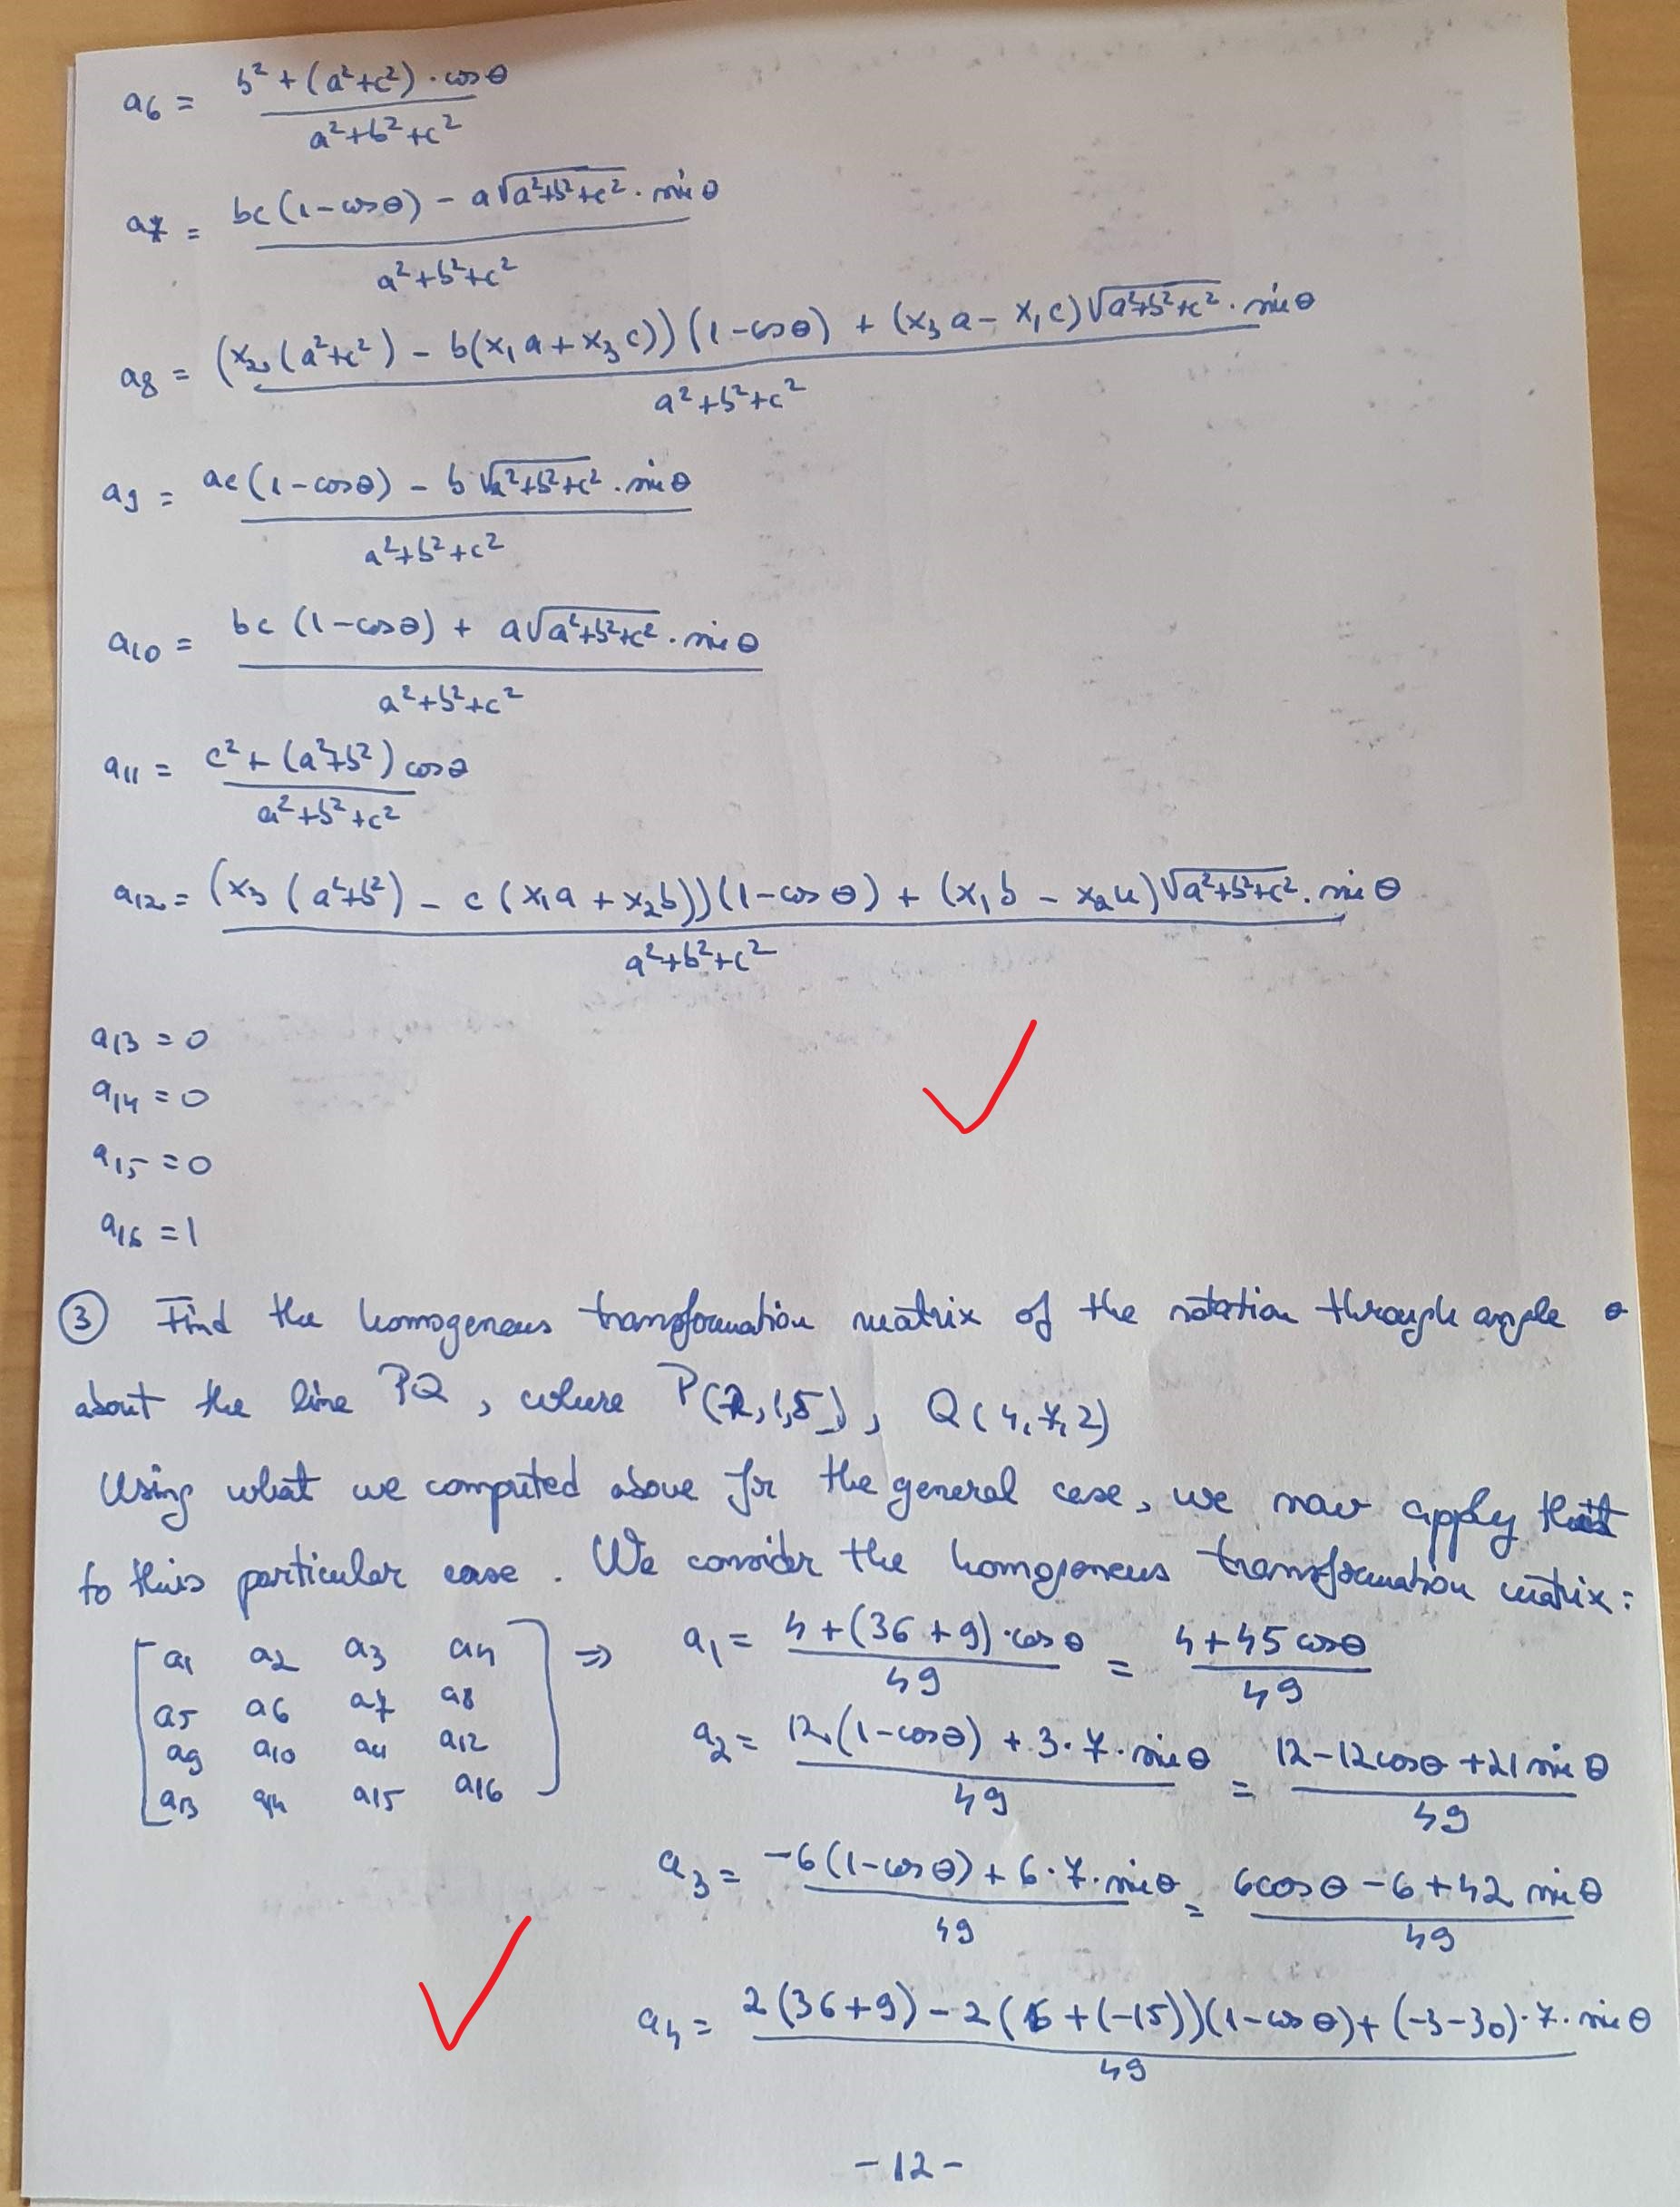 a6 = (b² + (a²+c²)·cosθ) / (a²+b²+c²)
a7 = (bc(1-cosθ) - a√(a²+b²+c²)·sinθ) / (a²+b²+c²)
a8 = ((x₂(a²+c²) - b(x₁a + x₃c))(1-cosθ) + (x₃a - x₁c)√(a²+b²+c²)·sinθ) / (a²+b²+c²)
a9 = (ac(1-cosθ) - b√(a²+b²+c²)·sinθ) / (a²+b²+c²)
a10 = (bc(1-cosθ) + a√(a²+b²+c²)·sinθ) / (a²+b²+c²)
a11 = (c² + (a²+b²)cosθ) / (a²+b²+c²)
a12 = ((x₃(a²+b²) - c(x₁a + x₂b))(1-cosθ) + (x₁b - x₂a)√(a²+b²+c²)·sinθ) / (a²+b²+c²)
a13 = 0
a14 = 0
a15 = 0
a16 = 1
③ Find the homogenous transformation matrix of the rotation through angle θ
about the line PQ, where P(2,1,5), Q(4,7,2)
Using what we computed above for the general case, we now apply that
to this particular case. We consider the homogeneous transformation matrix:
[a1 a2 a3 a4
a5 a6 a7 a8
a9 a10 a11 a12
a13 a14 a15 a16] ⇒
a1 = (4+(36+9)·cosθ)/49 = (4+45cosθ)/49
a2 = (12(1-cosθ) + 3·7·sinθ)/49 = (12-12cosθ+21sinθ)/49
a3 = (-6(1-cosθ) + 6·7·sinθ)/49 = (6cosθ-6+42sinθ)/49
a4 = (2(36+9) - 2(6+(-15))(1-cosθ) + (-3-30)·7·sinθ)/49
-12-